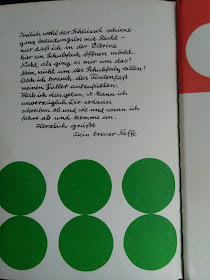 Freilich wohl der Schlüssel schiene
ganz bedeutungslos mit Recht -
nur daß ich in der Vitrine
bar ein Schubfach öffnen möcht.
Nicht, als ging es mir um das!
Nein, nicht um des Schubfachs willen!
Doch ich brauch das Tintenfaß
meinen Füller aufzufüllen.
Hab ich dies getan, so kann ich
unverzüglich Dir sodann
schreiben ob und wie und wann ich
fahre ab und komme an.
Herzlich grüßt
Dein treuer Neffe